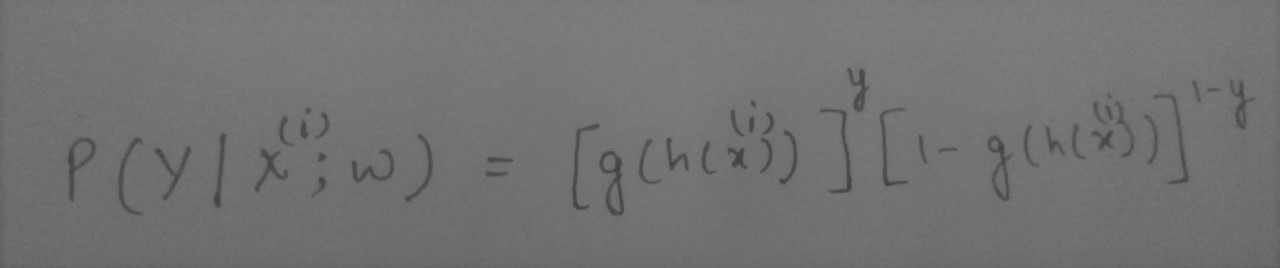 P(Y | x^{(i)}; w) = [g(h(x^{(i)}))]^{y} [1 - g(h(x^{(i)}))]^{1-y}